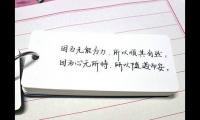 因为无能为力，所以顺其自然。
因为心无所恃，所以随遇而安。